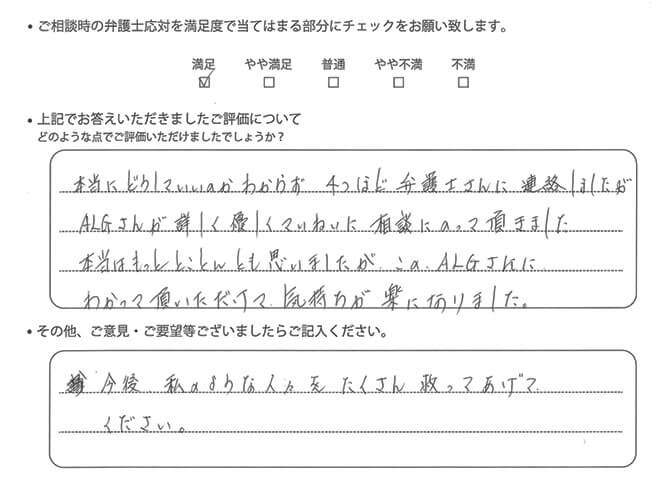 ・ご相談時の弁護士応対を満足度で当てはまる部分にチェックをお願い致します。
満足 やや満足 普通 やや不満 不満
☑ □ □ □ □
・上記でお答えいただきましたご評価について
どのような点でご評価いただけましたでしょうか？
本当にどうしていいのかわからず 4つほど弁護士さんに連絡しましたが
ALGさんが詳しく優しくていねいに相談にのって頂きました
本当はもっととことんとも思いましたが、この、ALGさんに
わかって頂いただけで、気持ちが楽になりました。
・その他、ご意見・ご要望等ございましたらご記入ください。
今後、私のような人々をたくさん救ってあげて
ください。